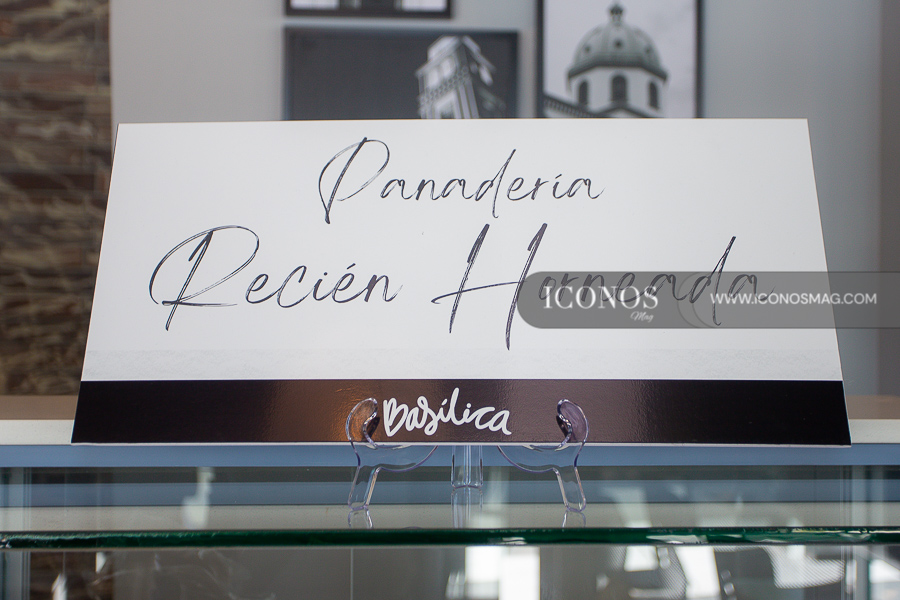 Panadería
Recién Horneada
ICONOS
Mag
WWW.ICONOSMAG.COM
Basílica